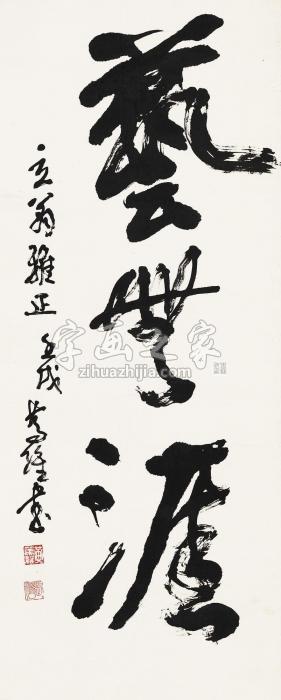 藝無涯
立翁雅正 壬戌 黃維書
字画之家
zihuazhijia.com